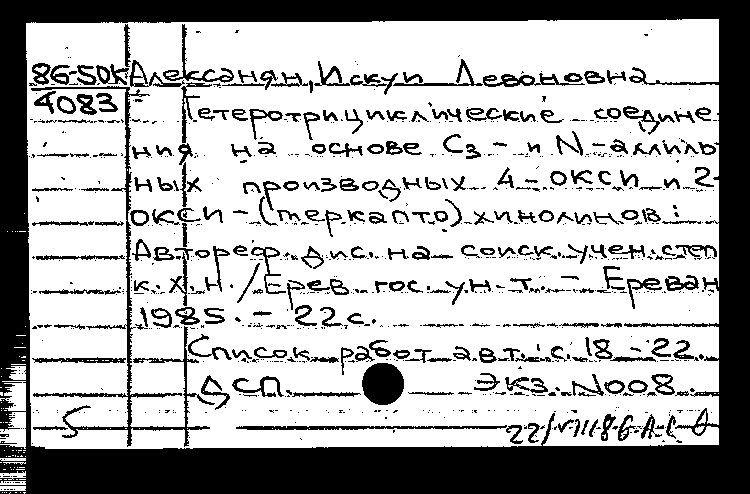 86-50К Алексанян, Искуи Левоновна.
4083 Гетеротрициклические соедине
ния на основе С3 - и N - аллиль
ных производных 4 - окси и 2-
окси - (меркапто) хинолинов:
Автореф. дис. на соиск. учен. степ
к. х. н. / Ерев. гос. ун-т. - Ереван
1985. - 22 с.
Список работ авт.: с. 18 - 22.
ДСП. Экз. N008.
5